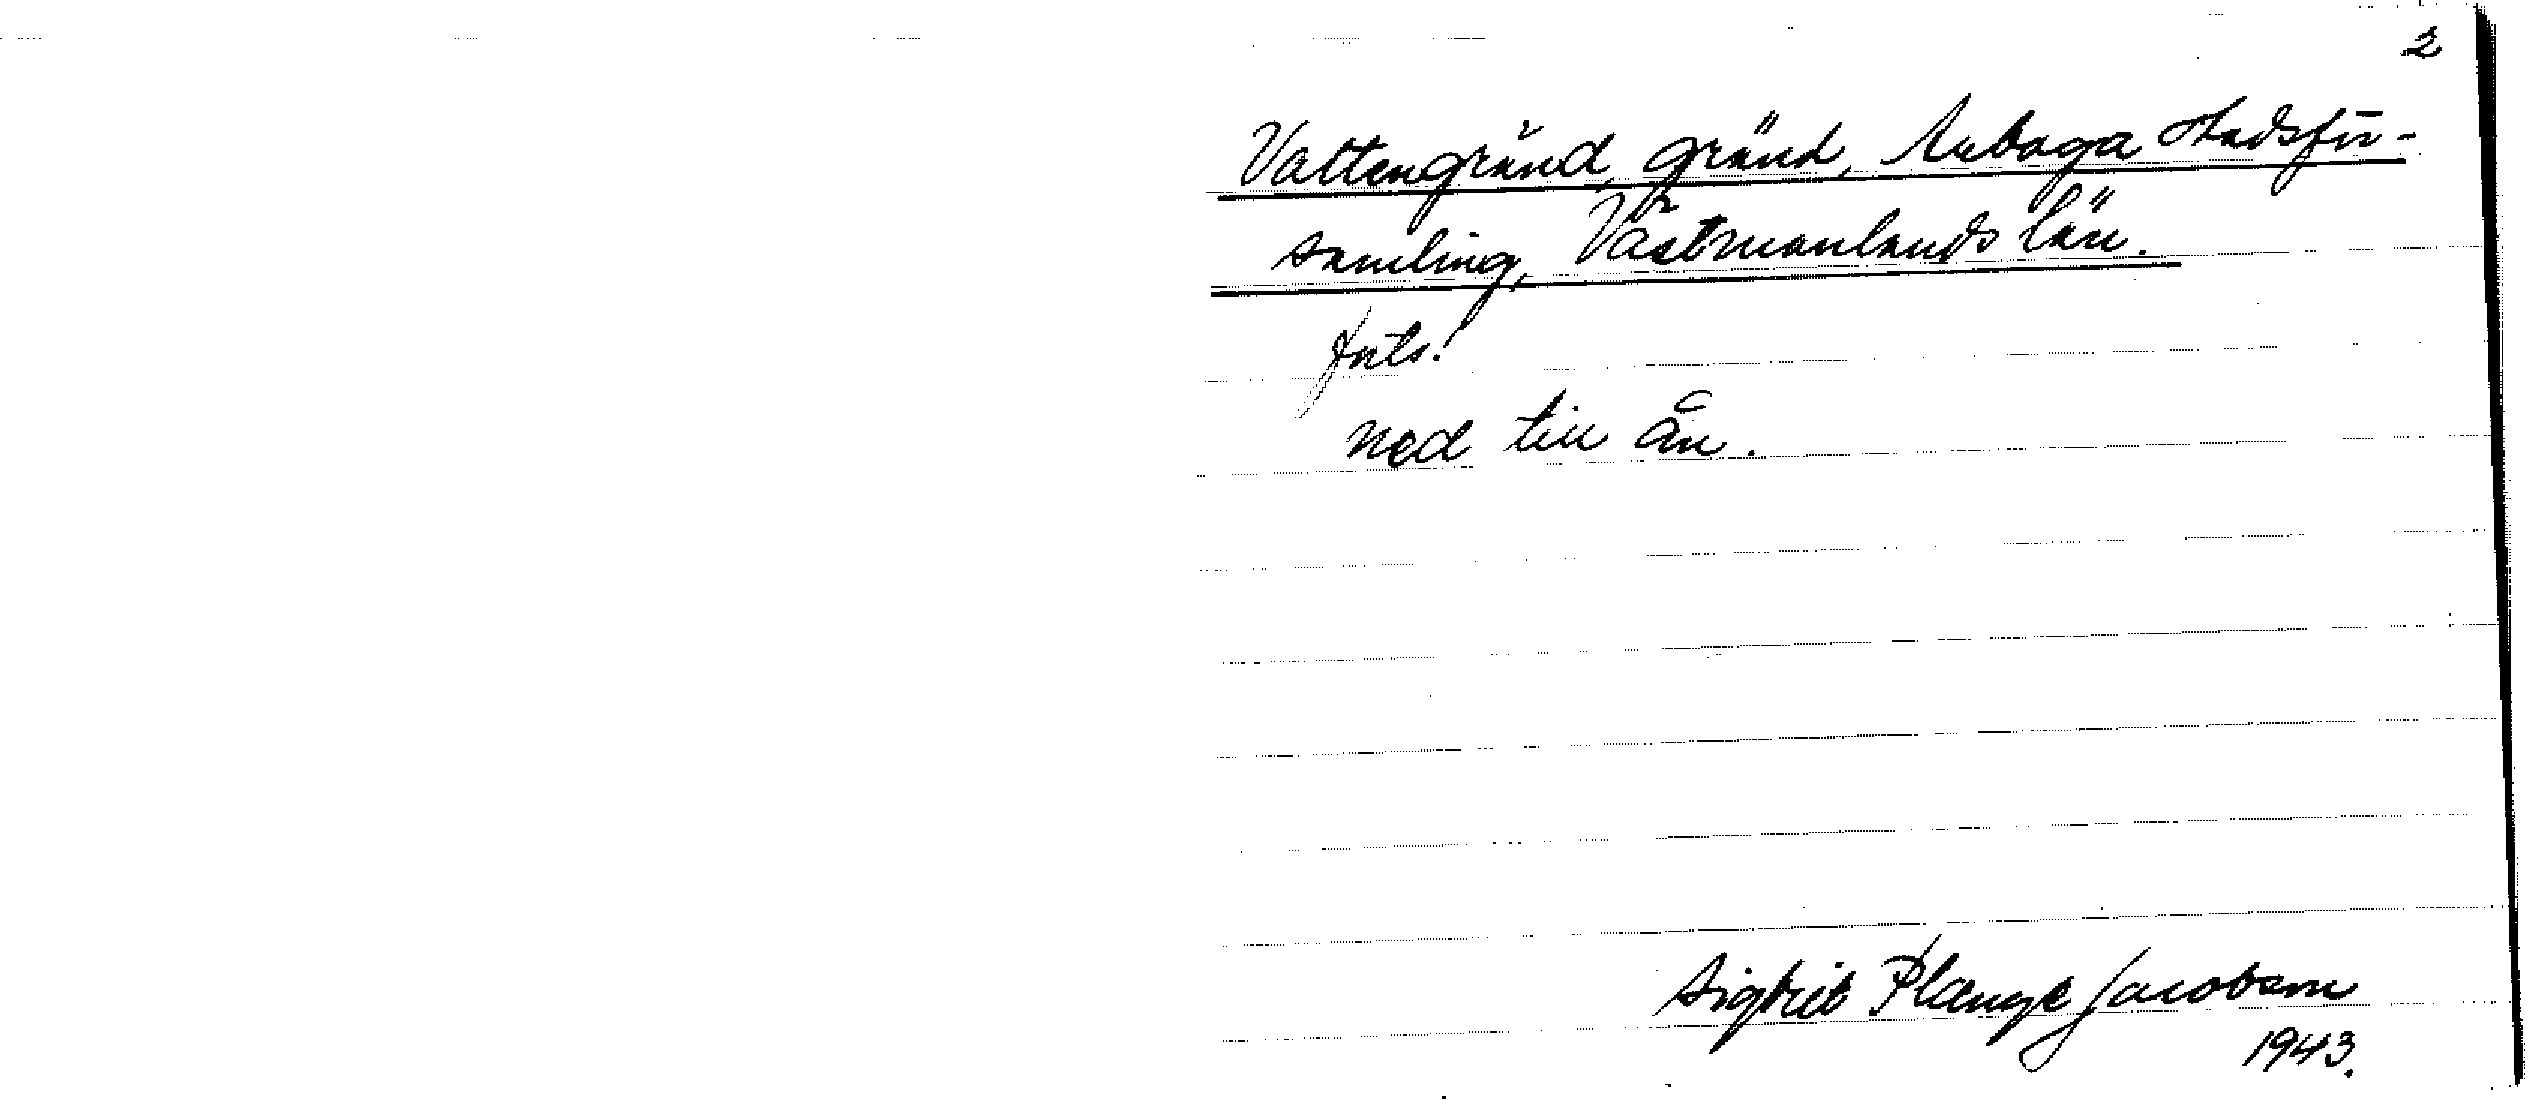 2
Vattengränd, gränd, Arboga stadsför-
samling, Västmanlands län.
forts.
ned till ån.
Sigbrit Plænge Jacobson
1943.